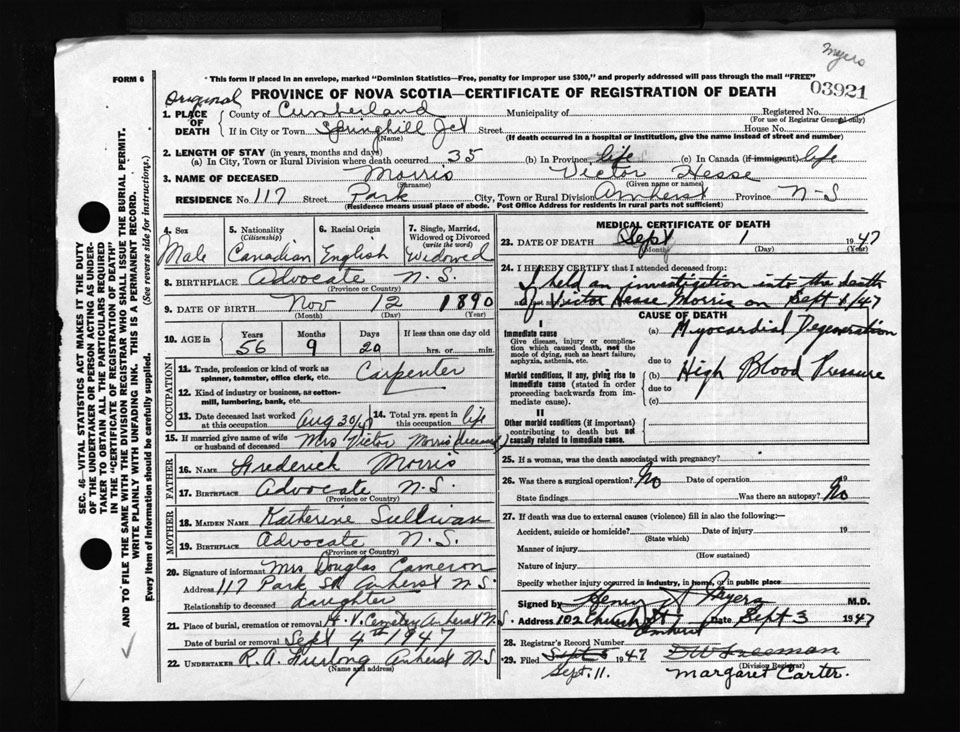 Myers
FORM 6
This form if placed in an envelope, marked "Dominion Statistics—Free, penalty for improper use $300," and properly addressed will pass through the mail "FREE"
03921
Original
PROVINCE OF NOVA SCOTIA—CERTIFICATE OF REGISTRATION OF DEATH
1. PLACE OF DEATH County of Cumberland Municipality of Registered No.
(For use of Registrar General only)
If in City or Town Springhill Jct Street House No.
(Name) (If death occurred in a hospital or institution, give the name instead of street and number)
2. LENGTH OF STAY (in years, months and days)
(a) In City, Town or Rural Division where death occurred 35 (b) In Province life (c) In Canada (if immigrant) life
3. NAME OF DECEASED Morris Victor Hesse
(Surname) (Given name or names)
RESIDENCE No. 117 Street Park City, Town or Rural Division Amherst Province N-S
(Residence means usual place of abode. Post Office Address for residents in rural parts not sufficient)
4. Sex 5. Nationality (Citizenship) 6. Racial Origin 7. Single, Married, Widowed or Divorced (write the word)
Male Canadian English Widowed
8. BIRTHPLACE Advocate N.S.
(Province or Country)
9. DATE OF BIRTH Nov 12 1890
(Month) (Day) (Year)
10. AGE in Years Months Days If less than one day old
56 9 20 hrs. or min.
OCCUPATION
11. Trade, profession or kind of work as spinner, teamster, office clerk, etc. Carpenter
12. Kind of industry or business, as cotton-mill, lumbering, bank, etc.
13. Date deceased last worked at this occupation Aug 30/47 14. Total yrs. spent in this occupation life
15. If married give name of wife or husband of deceased Mrs Victor Morris (deceased)
FATHER
16. NAME Frederick Morris
17. BIRTHPLACE Advocate N.S.
(Province or Country)
MOTHER
18. MAIDEN NAME Katherine Sullivan
19. BIRTHPLACE Advocate N.S.
(Province or Country)
20. Signature of informant Mrs Douglas Cameron
Address 117 Park St Amherst N.S.
Relationship to deceased daughter
21. Place of burial, cremation or removal H.V. Cemetery Amherst N.S.
Date of burial or removal Sept 4th 1947
22. UNDERTAKER R.A. Furlong Amherst N.S.
(Name and address)
MEDICAL CERTIFICATE OF DEATH
23. DATE OF DEATH Sept 1 1947
(Month) (Day)
24. I HEREBY CERTIFY that I attended deceased from:
I held an investigation into the death
of Victor Hesse Morris on Sept 1/47
CAUSE OF DEATH
I
Immediate cause (a) Myocardial Degeneration
Give disease, injury or complication which caused death, not the mode of dying, such as heart failure, asphyxia, asthenia, etc.
due to
Morbid conditions, if any, giving rise to immediate cause (stated in order proceeding backwards from immediate cause).
(b) High Blood Pressure
due to
(c)
II
Other morbid conditions (if important) contributing to death but not causally related to immediate cause.
25. If a woman, was the death associated with pregnancy?
26. Was there a surgical operation? No Date of operation 19
State findings Was there an autopsy? No
27. If death was due to external causes (violence) fill in also the following:—
Accident, suicide or homicide? Date of injury 19
(State which)
Manner of injury
(How sustained)
Nature of injury
Specify whether injury occurred in industry, in home, or in public place
Signed by Henry Myers M.D.
Address 102 Church St Amherst Date Sept 3 1947
28. Registrar's Record Number
29. Filed Sept 1947 D W Freeman
(Division Registrar)
Sept. 11. Margaret Carter.
SEC. 46—VITAL STATISTICS ACT MAKES IT THE DUTY
OF THE UNDERTAKER OR PERSON ACTING AS UNDERTAKER TO OBTAIN ALL THE PARTICULARS REQUIRED
IN THE "CERTIFICATE OF REGISTRATION OF DEATH"
AND TO FILE THE SAME WITH THE DIVISION REGISTRAR WHO SHALL ISSUE THE BURIAL PERMIT.
WRITE PLAINLY WITH UNFADING INK. THIS IS A PERMANENT RECORD.
Every item of information should be carefully supplied. (See reverse side for instructions).